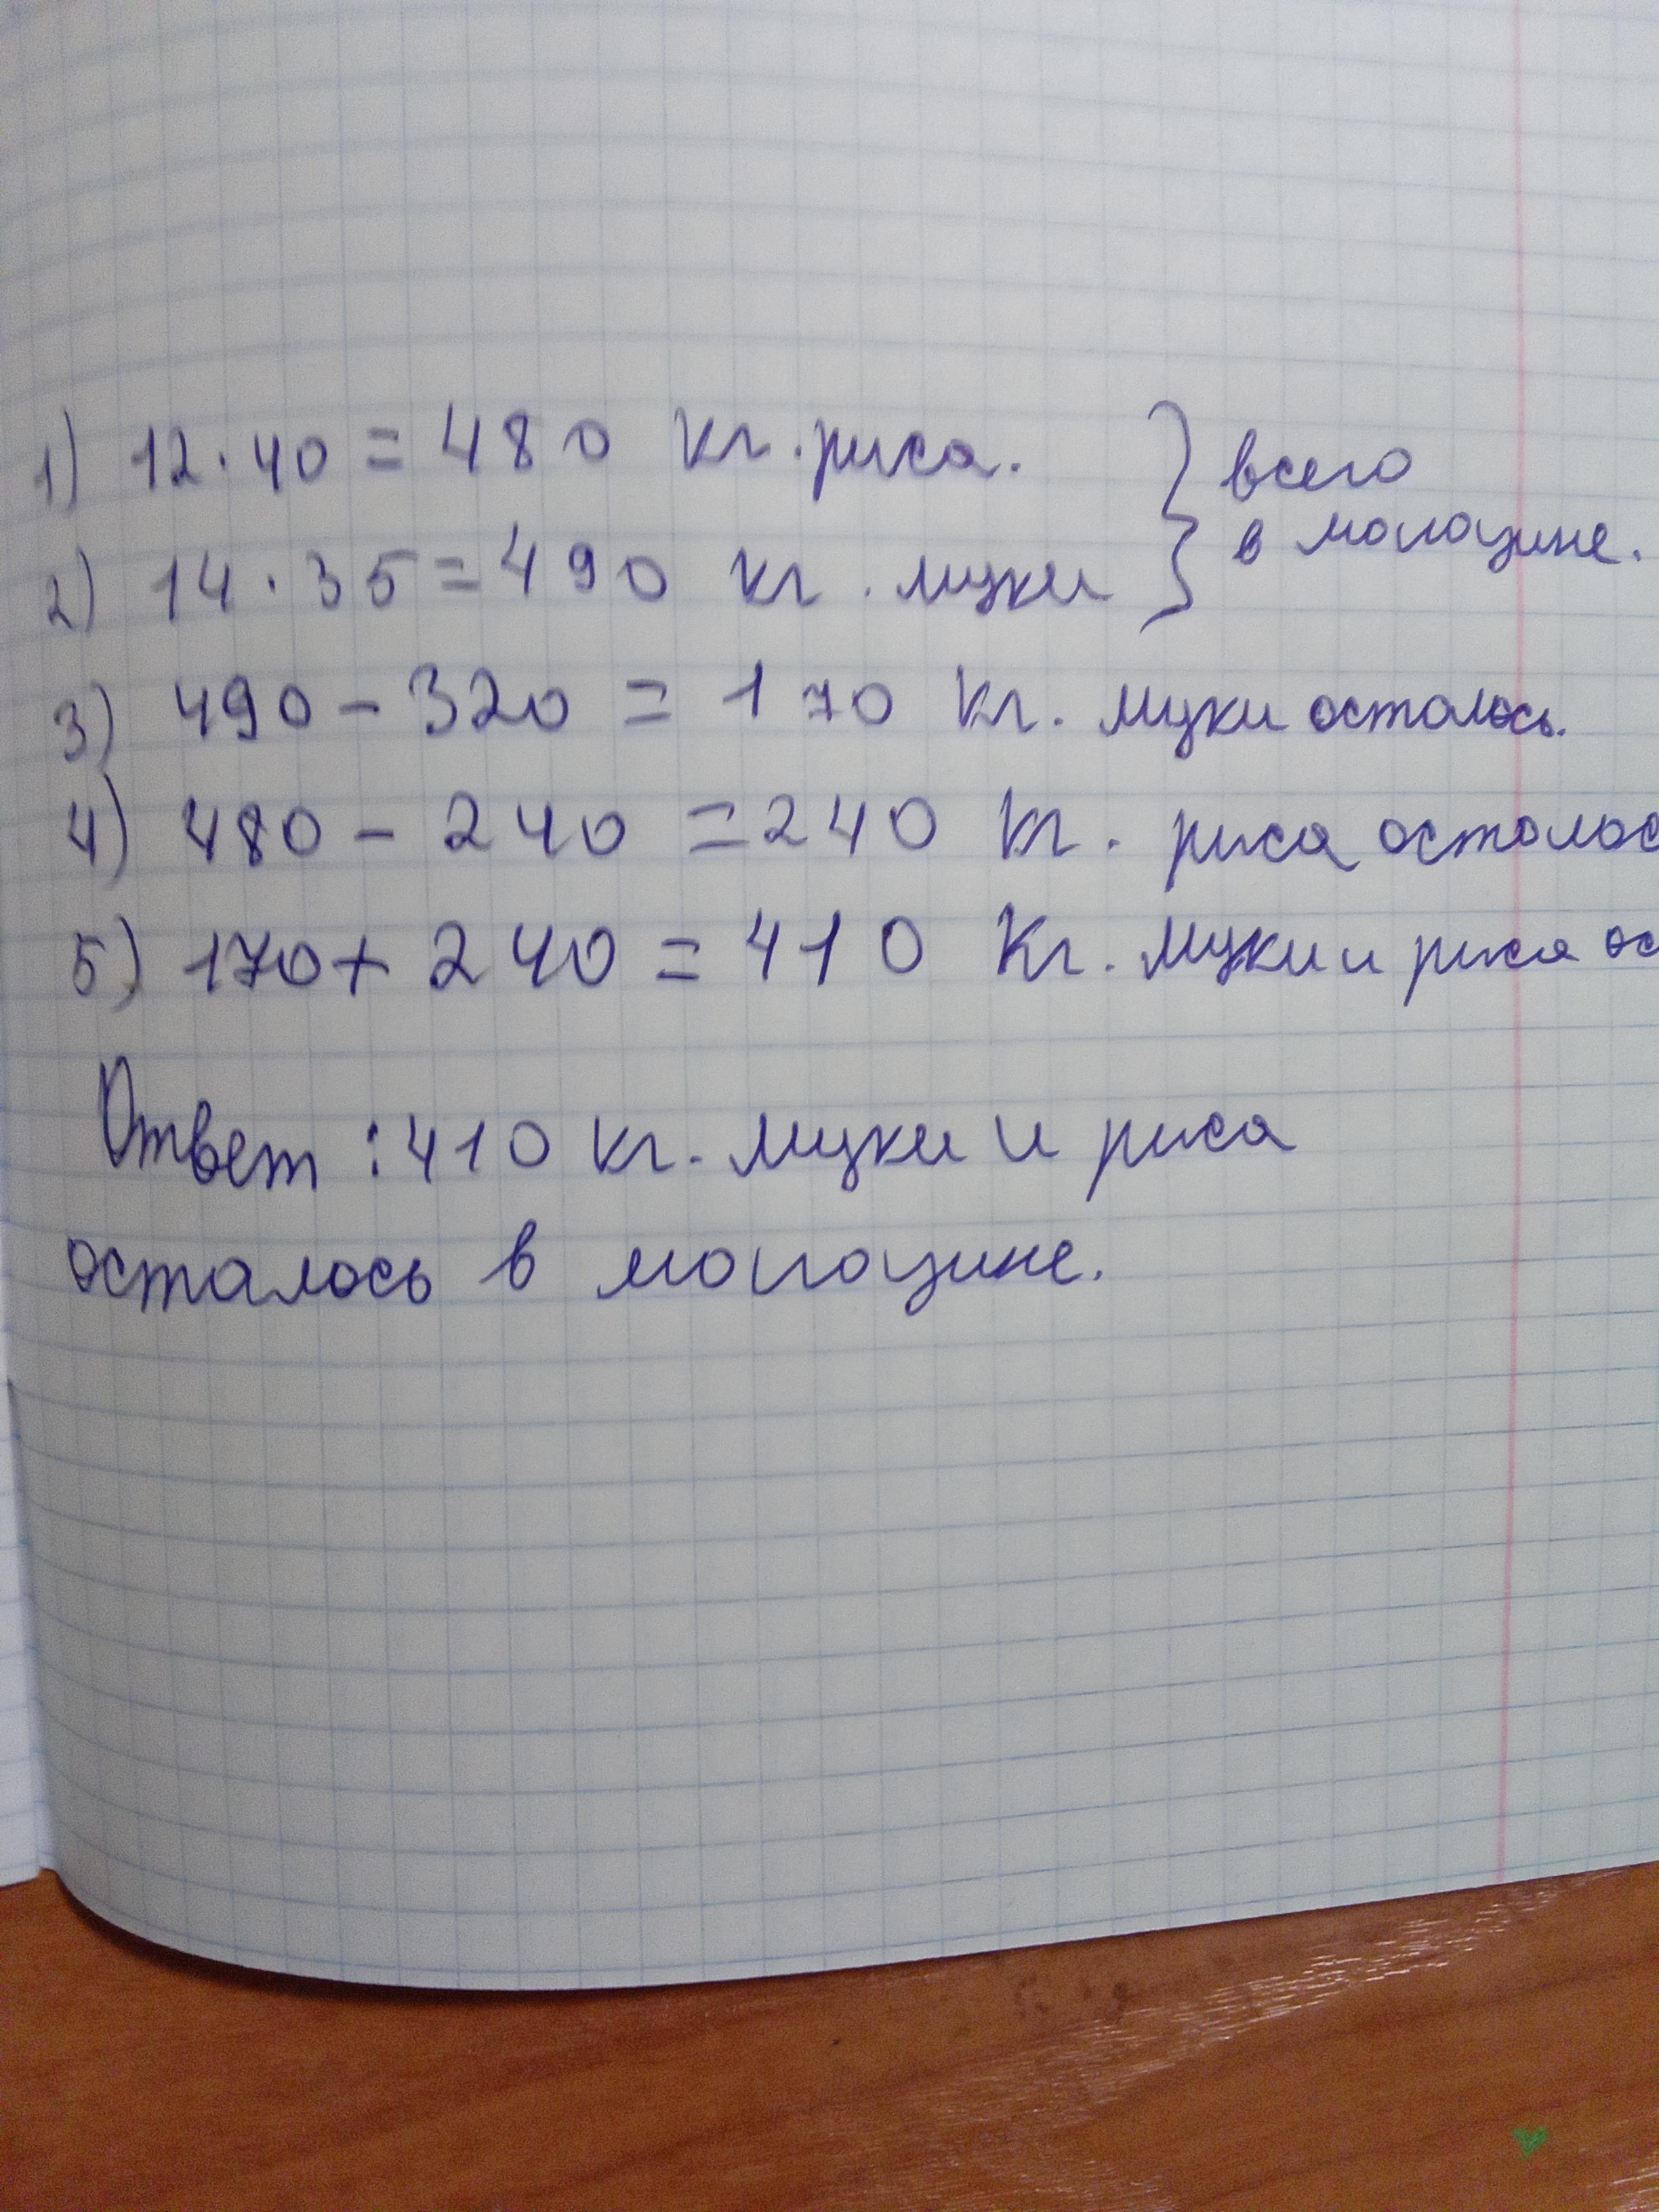 1) 12 · 40 = 480 кг. риса. } всего
в магазине.
2) 14 · 35 = 490 кг. муки
3) 490 - 320 = 170 кг. муки осталось.
4) 480 - 240 = 240 кг. риса осталос
5) 170 + 240 = 410 кг. муки и риса ос
Ответ : 410 кг. муки и риса
осталось в магазине.